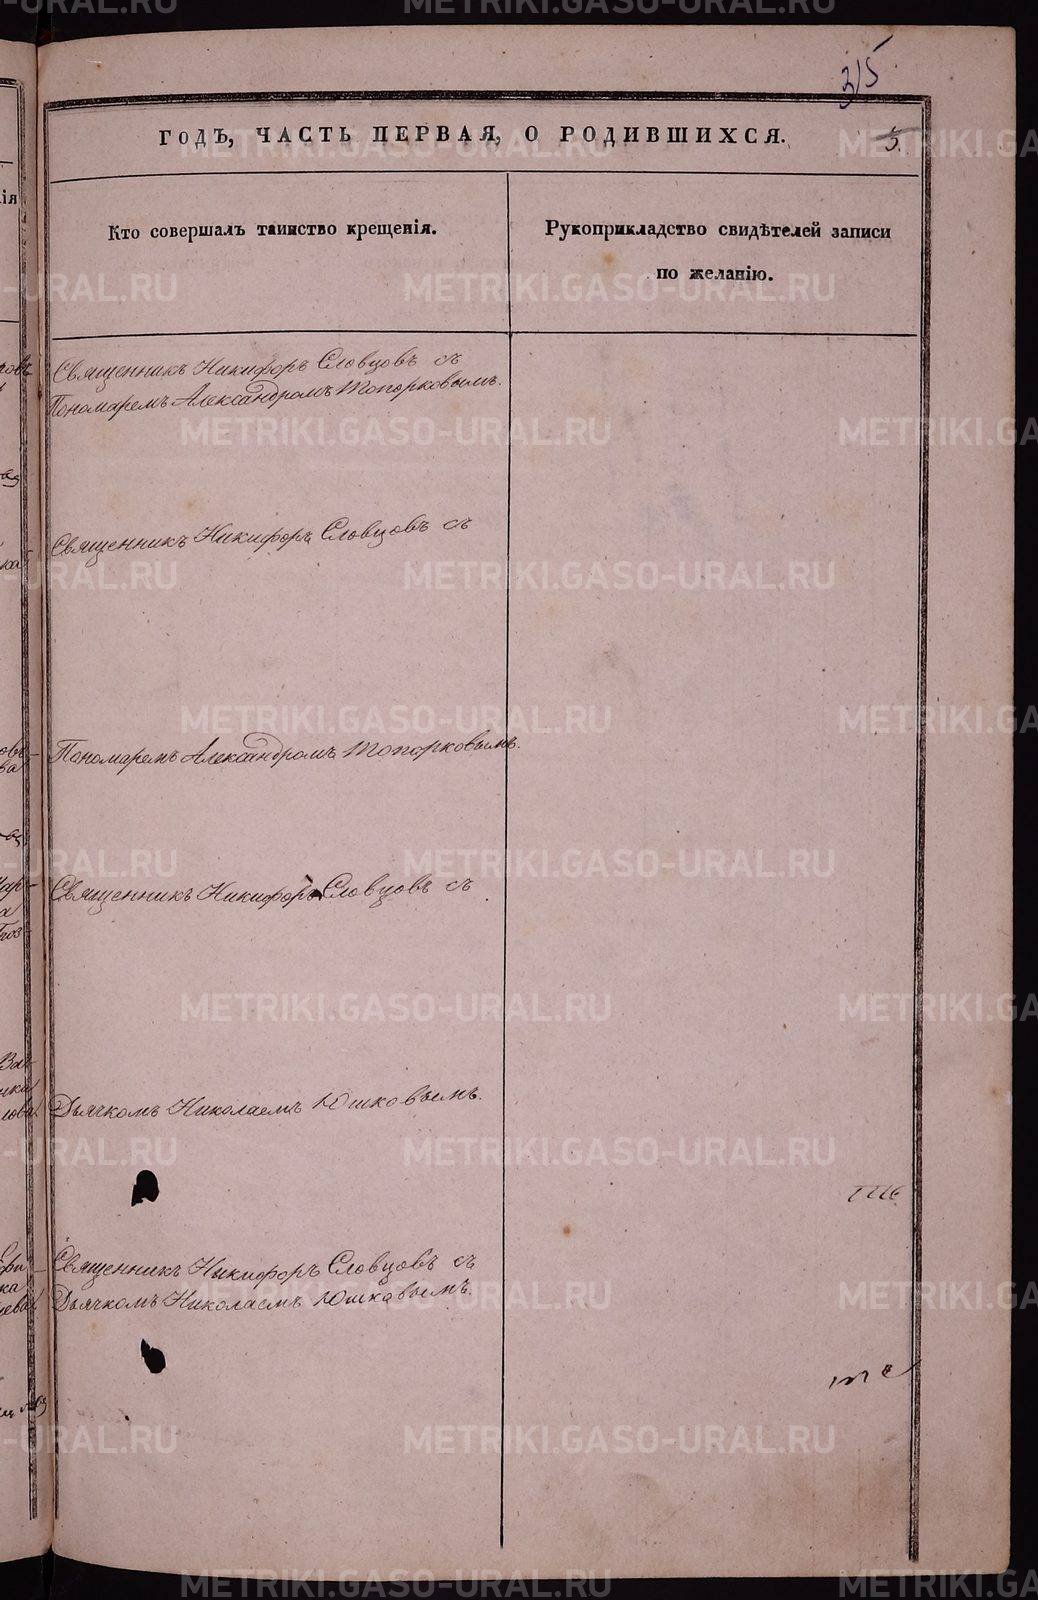 315
ГОДЪ, ЧАСТЬ ПЕРВАЯ, О РОДИВШИХСЯ.
5.
Кто совершалъ таинство крещенія.
Рукоприкладство свидѣтелей записи
по желанію.
Священникъ Никифоръ Словцовъ съ
Пономаремъ Александромъ Топорковымъ.
Священникъ Никифоръ Словцовъ съ
Пономаремъ Александромъ Топорковымъ.
Священникъ Никифоръ Словцовъ съ
Дьячкомъ Николаемъ Юшковымъ.
Священникъ Никифоръ Словцовъ съ
Дьячкомъ Николаемъ Юшковымъ.
METRIKI.GASO-URAL.RU